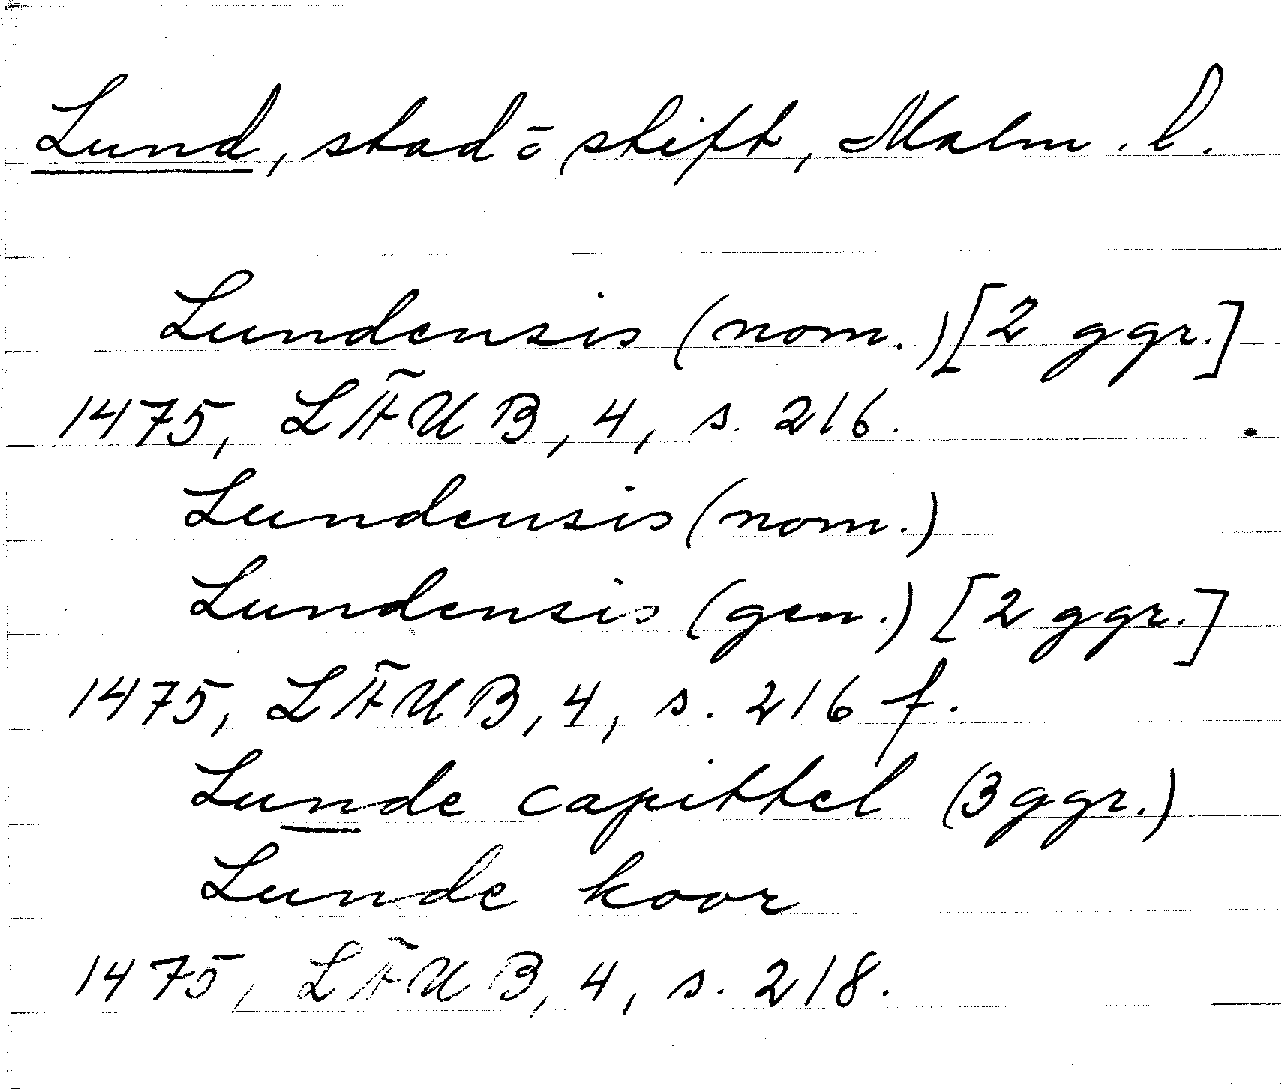 Lund, stad o̅ stift, Malm. l.
Lundensis (nom.) [2 ggr.]
1475, LÄUB, 4, s. 216.
Lundensis (nom.)
Lundensis (gen.) [2 ggr.]
1475, LÄUB, 4, s. 216 f.
Lunde capittel (3 ggr.)
Lunde koor
1475, LÄUB, 4, s. 218.